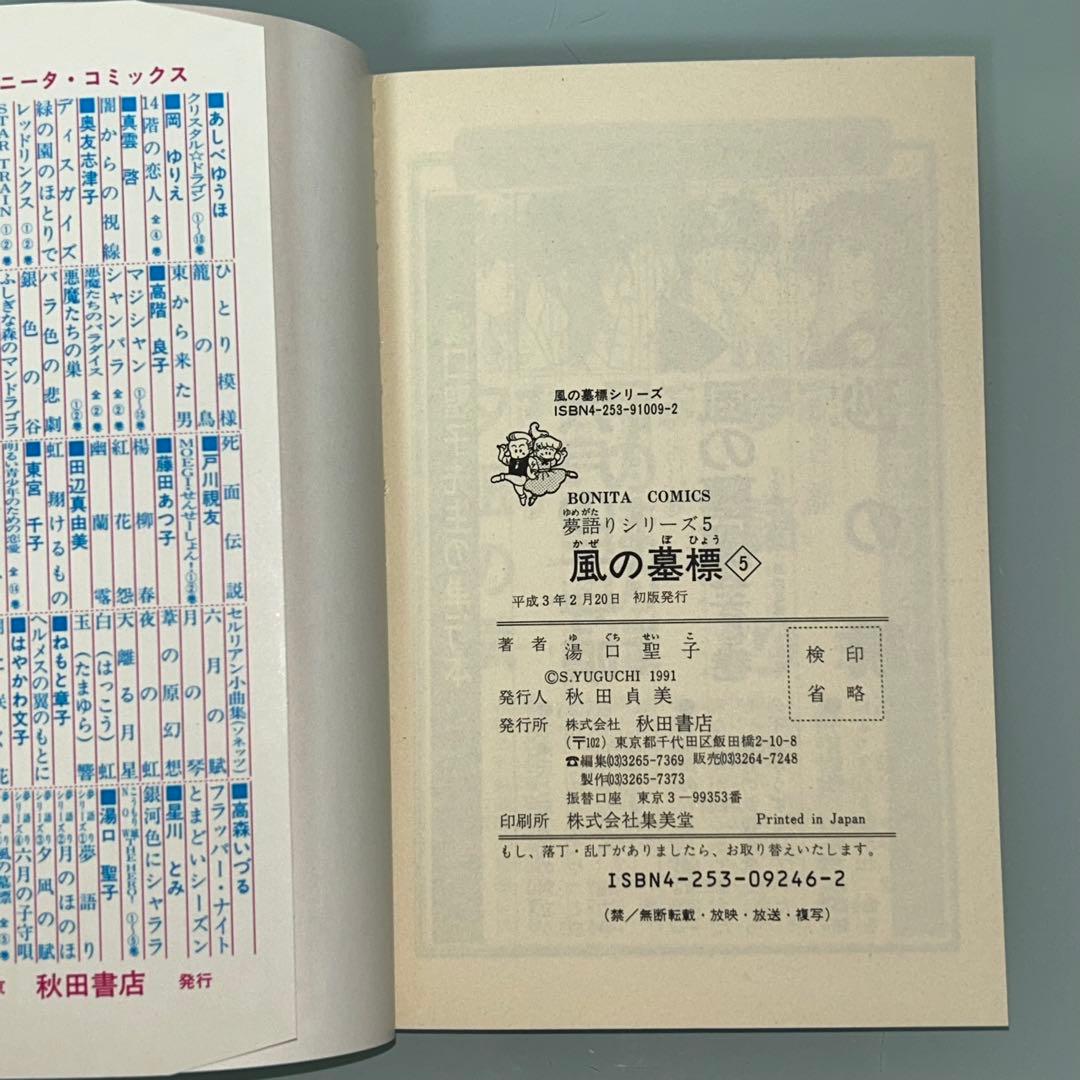 ニータ・コミックス
■あしべゆうほ
クリスタル☆ドラゴン
■岡 ゆりえ
14階の恋人 全④巻
■真雲 啓
闇からの視線
■奥友志津子
ディスガイズ
緑の園のほとりで
レッドリンクス ①②巻
STAR TRAIN ①②巻
ひとり模様
籠の鳥
東から来た男
■高階 良子
マジシャン
シャンバラ 全②巻
悪魔たちのパラダイス 全②巻
悪魔たちの巣 ①②巻
バラ色の悲劇
銀色の谷
ふしぎな森のマンドラゴラ
死面伝説
■戸川視友
MOEGI・せんせーしょん!
■藤田あつ子
楊柳春
紅花怨
幽蘭零
■田辺真由美
虹翔けるもの
■東宮 千子
明るい青少年のための恋愛
セルリアン小曲集(ソネッツ)
六月の賦
月の琴
葦の原幻想
夜の虹
天離る月星
白(はっこう)虹
玉(たまゆら)響
■ねもと章子
ヘルメスの翼のもとに
■はやかわ文子
■高森いづる
フラッパー・ナイト
とまどいシーズン
■星川 とみ
銀河色にシャララ
■湯口 聖子
夢語りシリーズ① 夢語り
夢語りシリーズ② 月のほのほ
夢語りシリーズ③ 夕凪の賦
夢語りシリーズ④ 六月の子守唄
秋田書店 発行
風の墓標シリーズ
ISBN4-253-91009-2
BONITA COMICS
ゆめがた
夢語りシリーズ5
かぜ ぼ ひょう
風の墓標 5
平成3年2月20日 初版発行
ゆ ぐち せい こ
著者 湯口聖子
©S.YUGUCHI 1991
検印
省略
発行人 秋田貞美
発行所 株式会社 秋田書店
(〒102) 東京都千代田区飯田橋2-10-8
☎編集(03)3265-7369 販売(03)3264-7248
製作(03)3265-7373
振替口座 東京3-99353番
印刷所 株式会社集美堂 Printed in Japan
もし、落丁・乱丁がありましたら、お取り替えいたします。
ISBN4-253-09246-2
(禁/無断転載・放映・放送・複写)